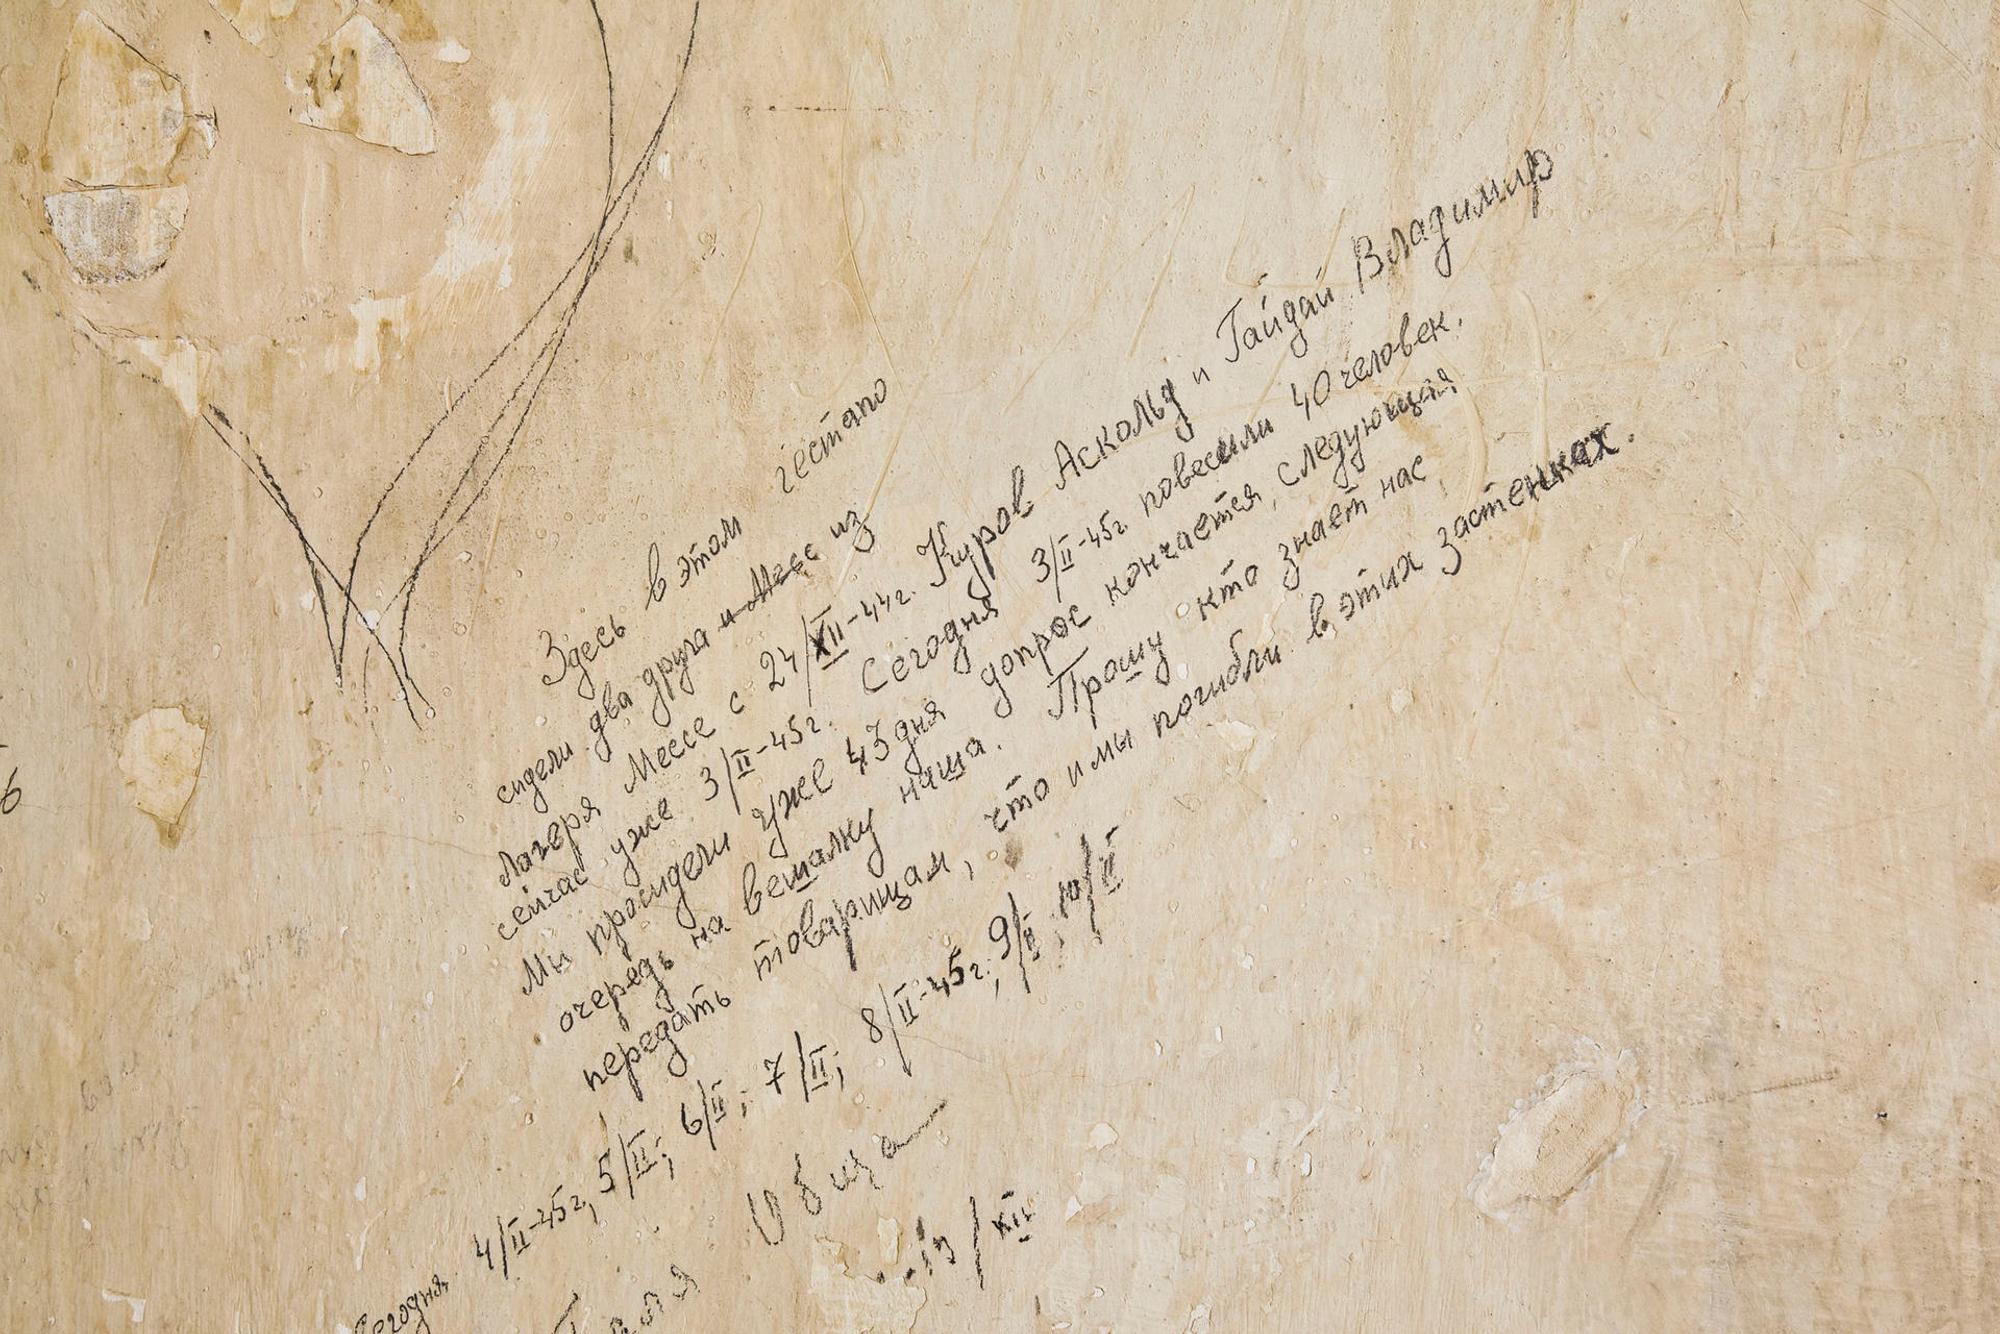 Здесь в этом гестапо
сидели два друга и Месс из
Лагеря Мессе с 24/XII-44г. Куров Аскольд и Гайдай Владимир
сейчас уже 3/II-45г. Сегодня 3/II-45г. повесили 40 человек.
Мы просидели уже 43 дня допрос кончается, следующая
очередь на вешалку наша. Прошу кто знает нас
передать товарищам, что и мы погибли в этих застенках.
Сегодня 4/II-45г, 5/II; 6/II; 7/II; 8/II-45г.; 9/II; 10/II
Галя
/XII
б